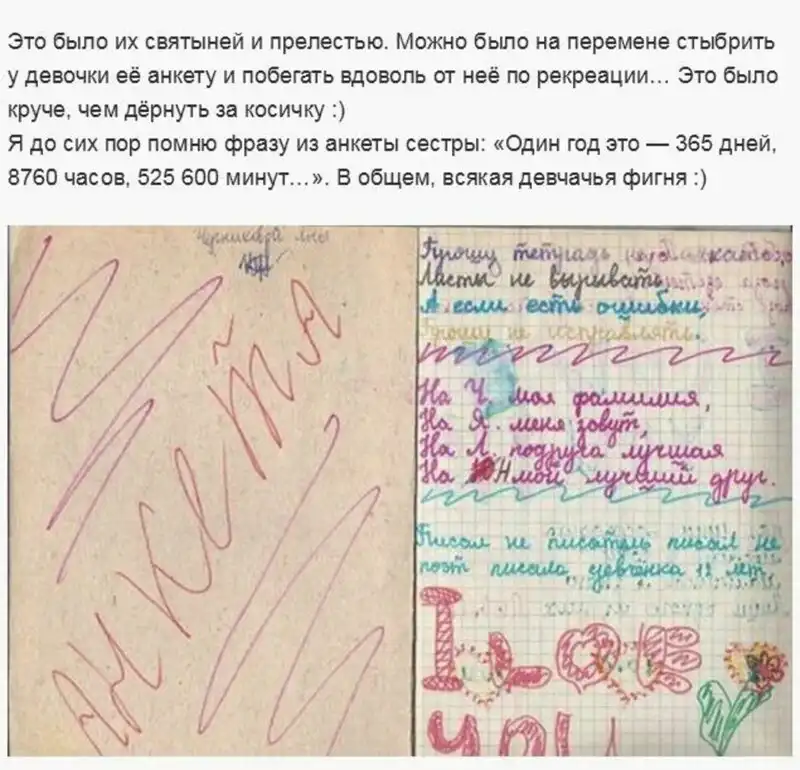 Это было их святыней и прелестью. Можно было на перемене стыбрить
у девочки её анкету и побегать вдоволь от неё по рекреации... Это было
круче, чем дёрнуть за косичку :)
Я до сих пор помню фразу из анкеты сестры: «Один год это — 365 дней,
8760 часов, 525 600 минут...». В общем, всякая девчачья фигня :)
Анкета
Прошу тетрадь не
Ласты не вырывать
А если есть ошибки,
Прошу не исправлять.
На Ч. моя фамилия,
На Я. меня зовут,
На Л. подруга лучшая
На Н мой лучший друг.
Писал не писатель писал не
поэт писала девчёнка 12 лет
I LOVE
YOU